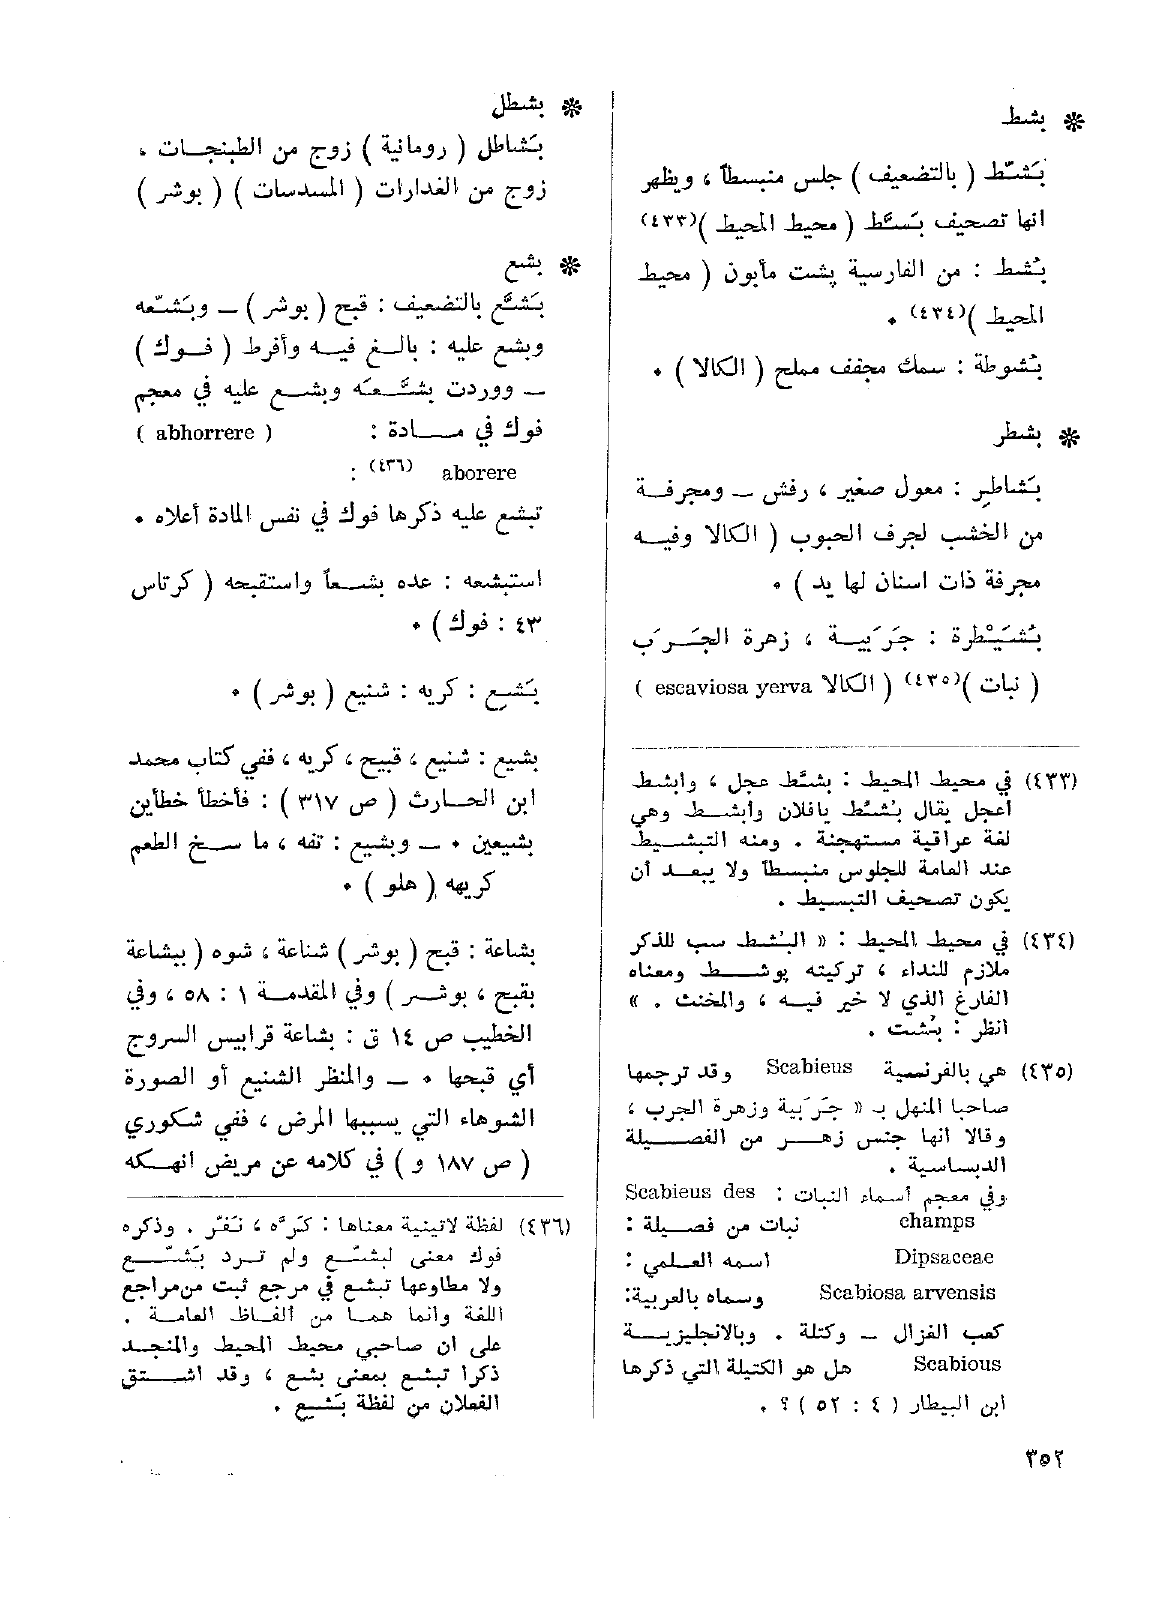 ❋ بشط
بَشَّط ( بالتضعيف ) جلس منبسطاً ، ويظهر
انها تصحيف بَسَّط ( محيط المحيط )(٤٣٣)
بُشط : من الفارسية پشت مأبون ( محيط
المحيط )(٤٣٤) .
بُشوطة : سمك مجفف مملح ( الكالا ) .
❋ بشطر
بَشاطِر : معول صغير ، رفش ــ ومجرفة
من الخشب لجرف الحبوب ( الكالا وفيه
مجرفة ذات اسنان لها يد ) .
بُشَيْطرة : جَرَبية ، زهرة الجَرَب
( نبات )(٤٣٥) ( الكالا escaviosa yerva )
(٤٣٣) في محيط المحيط : بشَّط عجل ، وأبشط
أعجل يقال بُشَّط يافلان وأبشط وهي
لغة عراقية مستهجنة . ومنه التبشيط
عند العامة للجلوس منبسطاً ولا يبعد أن
يكون تصحيف التبسيط .
(٤٣٤) في محيط المحيط : « البُشط سب للذكر
ملازم للنداء ، تركيته پوشط ومعناه
الفارغ الذي لا خير فيه ، والمخنث . »
انظر : بُشت .
(٤٣٥) هي بالفرنسية Scabieus وقد ترجمها
صاحبا المنهل بـ « جَرَبية وزهرة الجرب ،
وقالا انها جنس زهر من الفصيلة
الدبساسية .
وفي معجم أسماء النبات : Scabieus des
champs نبات من فصيلة :
Dipsaceae اسمه العلمي :
Scabiosa arvensis وسماه بالعربية:
كعب الغزال ــ وكتلة . وبالانجليزية
Scabious هل هو الكتيلة التي ذكرها
ابن البيطار ( ٤ : ٥٢ ) ؟ .
❋ بشطل
بَشاطل ( رومانية ) زوج من الطبنجات ،
زوج من الغدارات ( المسدسات ) ( بوشر )
❋ بشع
بَشَّع بالتضعيف : قبح ( بوشر ) ــ وبَشّعه
وبشع عليه : بالغ فيه وأفرط ( فوك )
ــ ووردت بشَّعَه وبشع عليه في معجم
فوك في مادة : ( abhorrere )
aborere (٤٣٦) :
تبشع عليه ذكرها فوك في نفس المادة أعلاه .
استبشعه : عده بشعاً واستقبحه ( كرتاس
٤٣ : فوك ) .
بَشِع : كريه : شنيع ( بوشر ) .
بشيع : شنيع ، قبيح ، كريه ، ففي كتاب محمد
ابن الحارث ( ص ٣١٧ ) : فأخطأ خطأين
بشيعين . ــ وبشيع : تفه ، ما سخ الطعم
كريهه ( هلو ) .
بشاعة : قبح ( بوشر ) شناعة ، شوه ( ببشاعة
بقبح ، بوشر ) وفي المقدمة ١ : ٥٨ ، وفي
الخطيب ص ١٤ ق : بشاعة قرابيس السروج
أي قبحها . ــ والمنظر الشنيع أو الصورة
الشوهاء التي يسببها المرض ، ففي شكوري
( ص ١٨٧ و ) في كلامه عن مريض انهكه
(٤٣٦) لفظة لاتينية معناها : كرَّه ، نَفّر . وذكره
فوك معنى لبشّع ولم ترد بَشَّع
ولا مطاوعها تبشع في مرجع ثبت من مراجع
اللغة وانما هما من ألفاظ العامة .
على ان صاحبي محيط المحيط والمنجد
ذكرا تبشع بمعنى بشع ، وقد اشتق
الفعلان من لفظة بَشِع .
٣٥٢